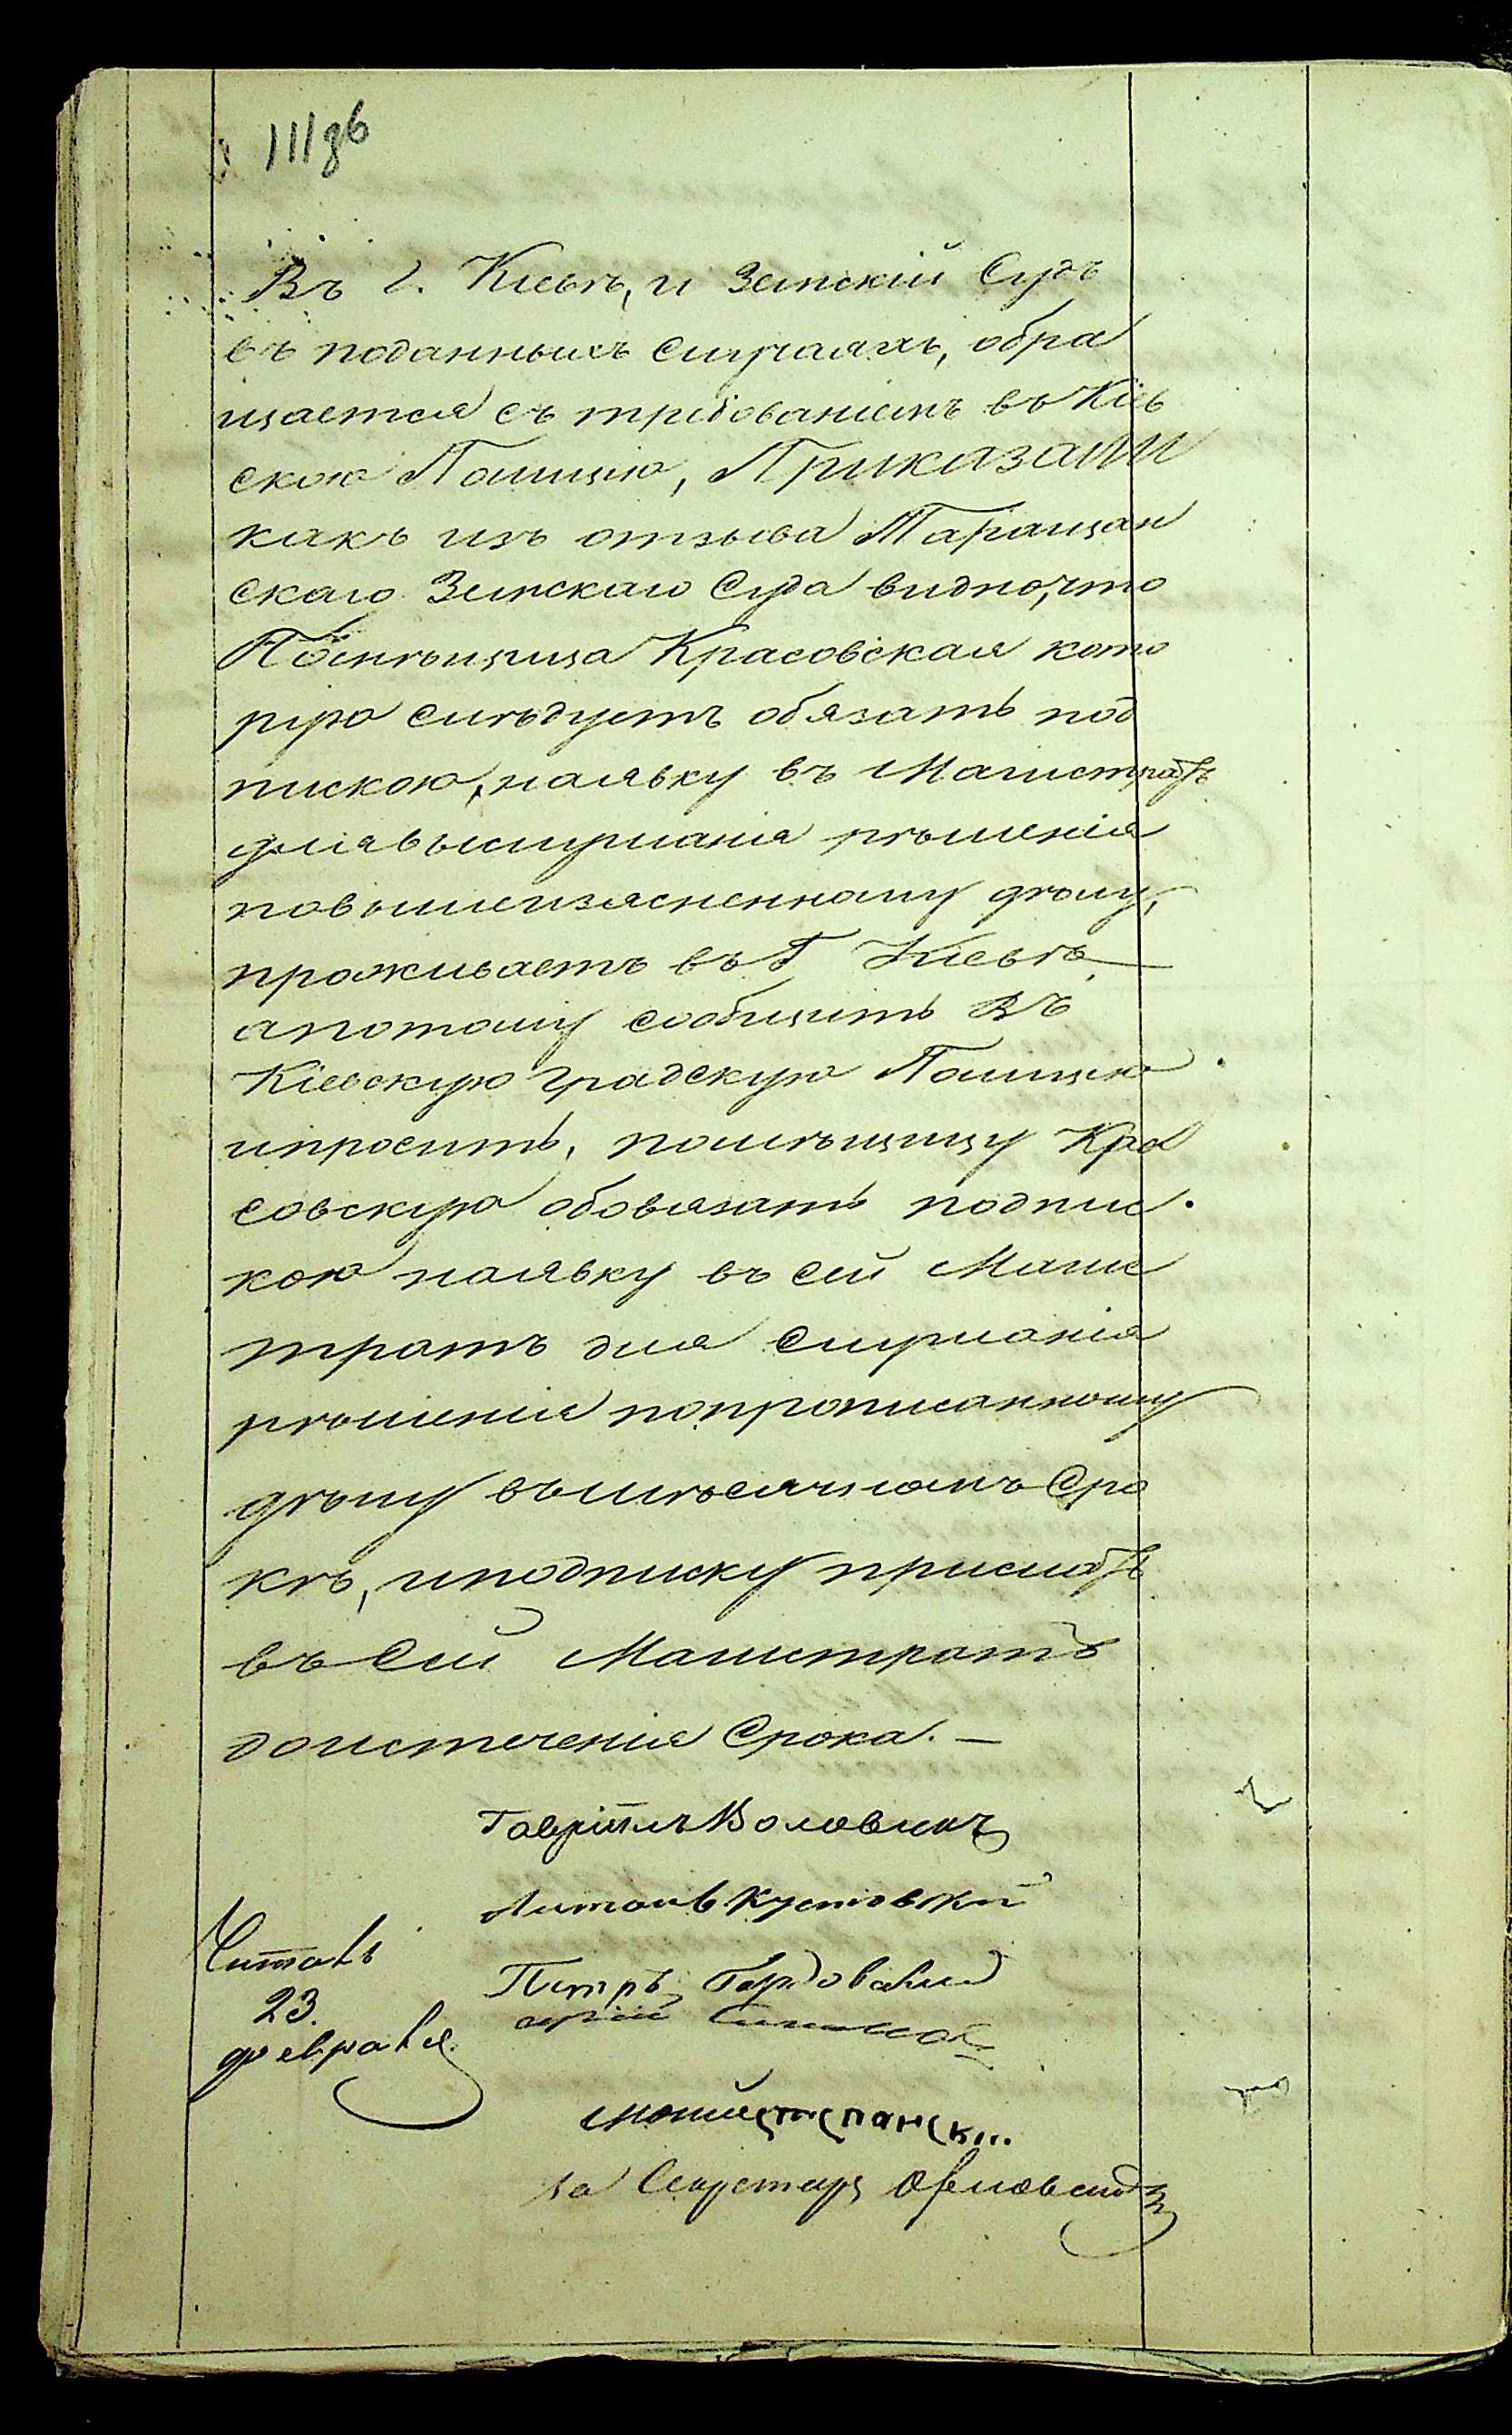 111 зв
Въ г. Кіевѣ, и Земскій Судъ
въ поданныхъ случаяхъ, обра
щается съ требованіемъ въ Кіев
скою Полицію, Приказали
какъ изъ отзыва Таращан
скаго Земскаго Суда видно, что
Помѣщица Красовская кото
рую слѣдуетъ обязать под
пискою, наявку въ Магистратъ
длявыслушанія рѣшенія
повышеизясненному дѣлу,
проживаетъ въ Г Кіевѣ
апотому сообщить Въ
Кіевскую градскую Полицію
ипросить, помѣщицу Кра
совскую обовязать подпис
кою наявку въ сей Магис
тратъ для слушанія
рѣшенія попрописанному
дѣлу вмѣсячномъ Сро
кѣ, иподписку прислать
въ Сей Магистратъ
доистеченія Срока. —
Гавріилъ Воловикъ
Антонъ Кустовскій
Читалъ
23.
февраля
Петръ
за Секретаря